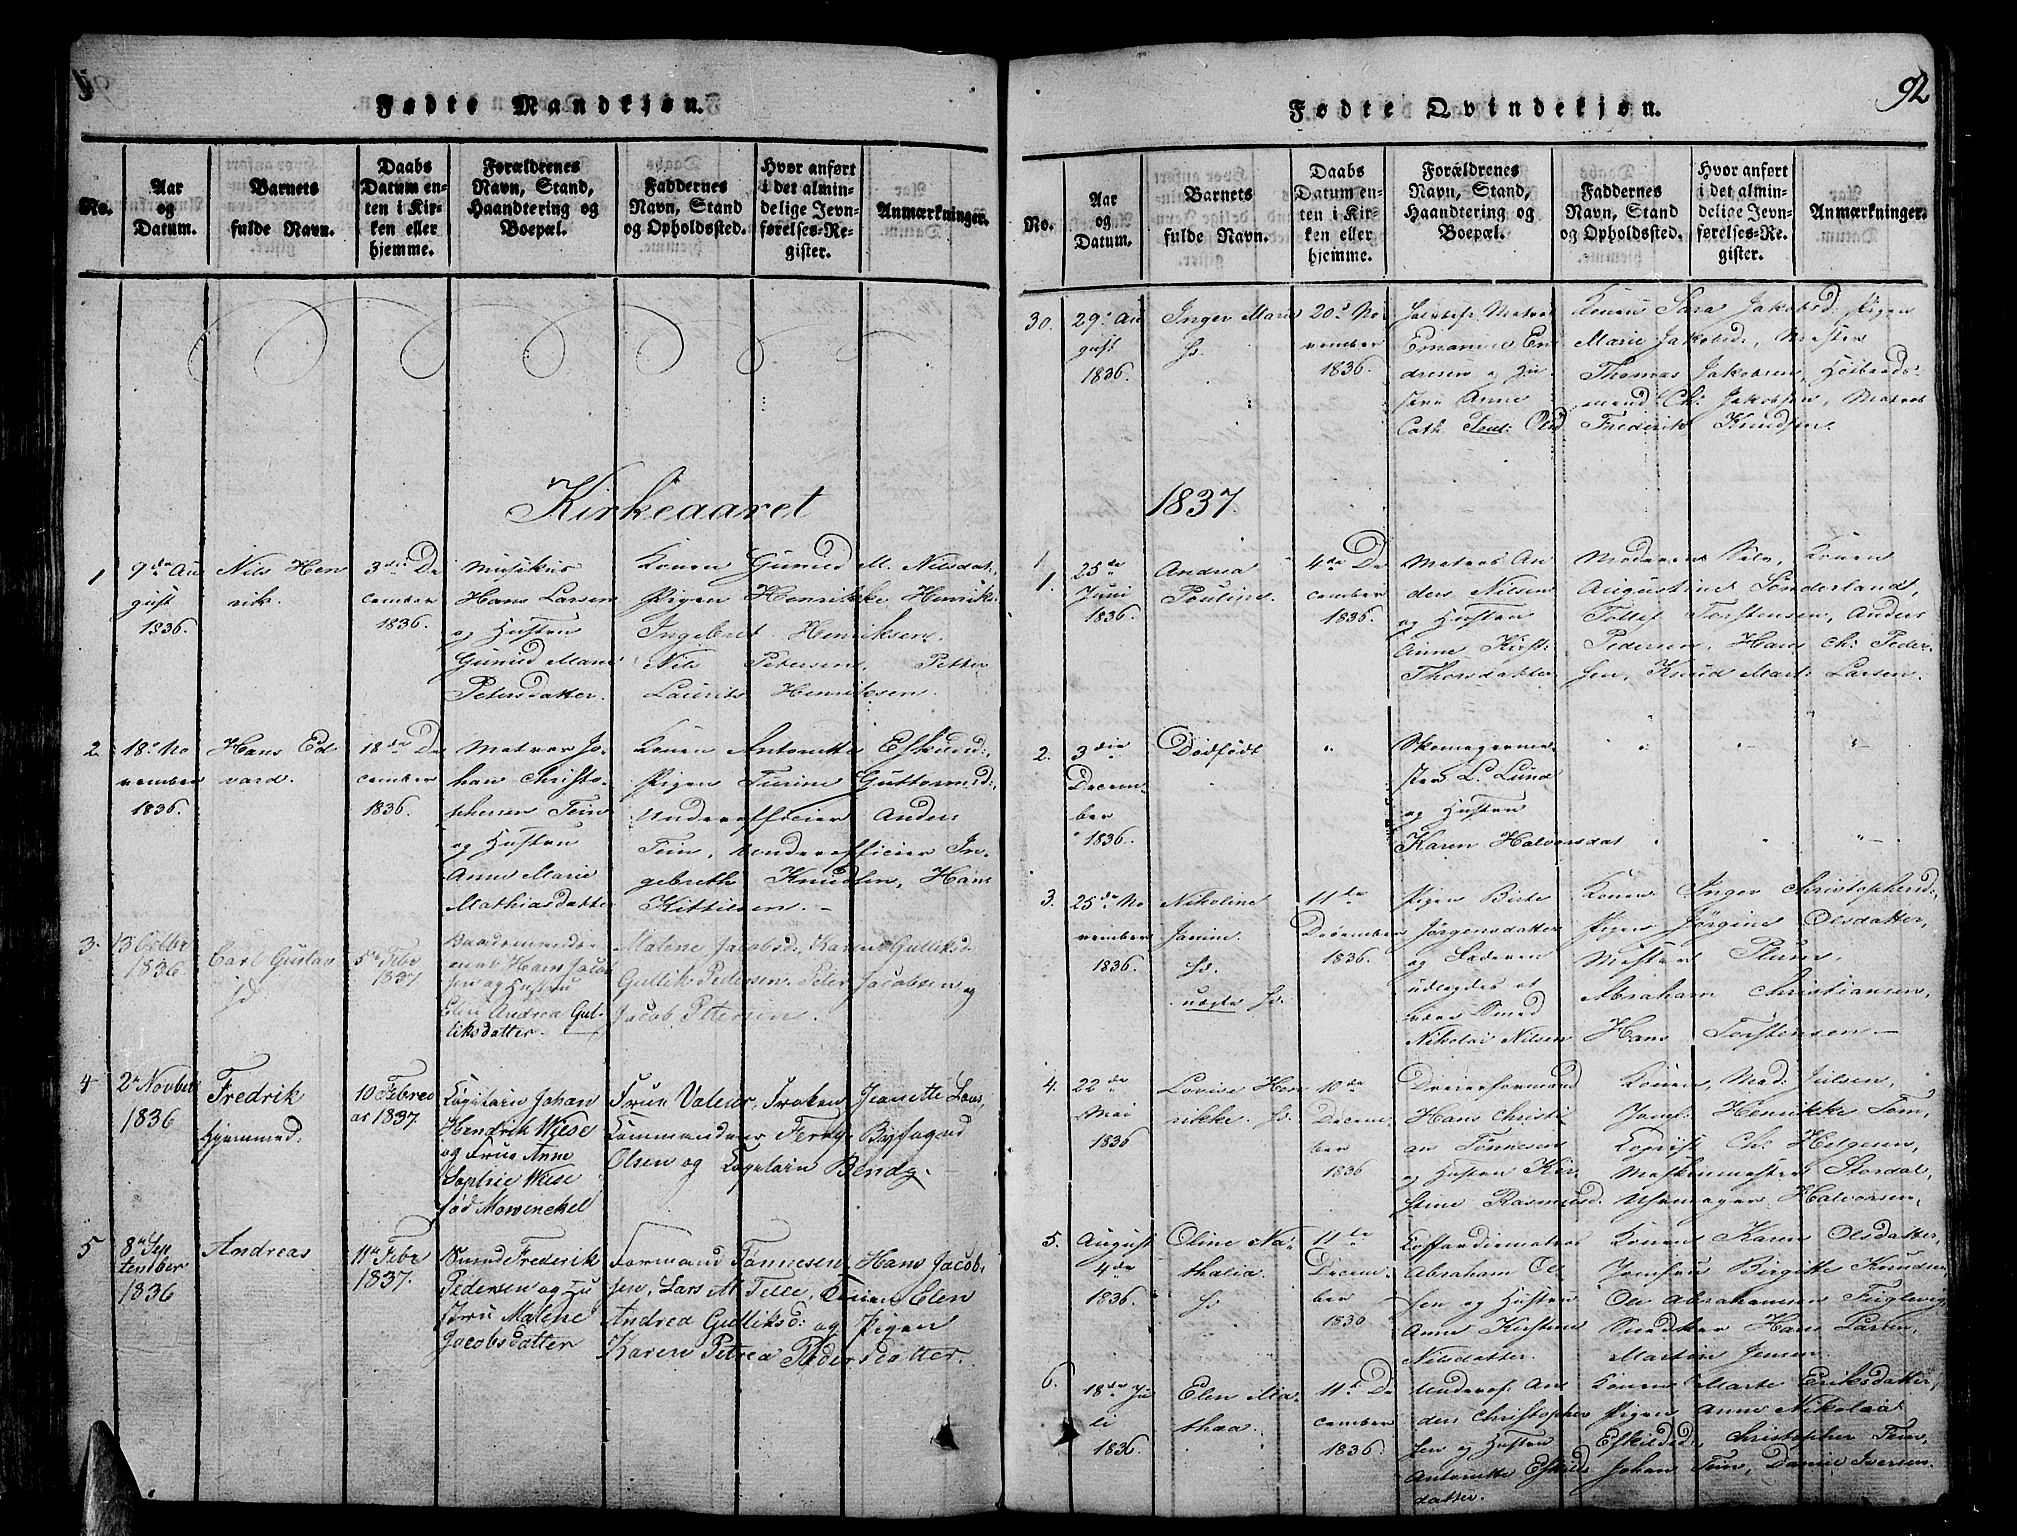 Fødte Mandkjøn.
No.
Aar
og
Datum.
Barnets
fulde Navn.
Daabs
Datum en-
ten i Kir-
ken eller
hjemme.
Forældrenes
Navn, Stand,
Haandtering og
Boepæl.
Faddernes
Navn, Stand
og Opholdssted.
Hvor anført
i det almin-
delige Jevn-
førelses-Re-
gister.
Anmærkninger.
Kirkeaaret
1
9de Au
gust
1836.
Nils Hen
rik.
3die De
cember
1836.
Musikus
Hans Larsen
og Hustru
Gunild Marie
Petersdatter.
Konen Gunild M. Nilsdat,
Pigen Henrikke Henriks
Ingebret Henriksen,
Nils Petersen, Petter
Laurits Henriksen.
2
18. No
vember
1836.
Hans Ed
vard.
18de De
cember
1836.
Matros Jo-
han Christo-
phersen Tein
og Hustru
Anne Marie
Mathiasdatter
Konen Antonette Eskild:
Pigen Turine Guttormsd:,
Underofficier Anders
Tein, Underofficier In-
gebreth Knudsen, Hans
Kittilsen. -
3
13 Octbr
1836.
Carl Gustav
5te Febr
1837
Hans Jacob
sen og Hustru
Elen Andrea Gul-
liksdatter.
Malene Jacobsd, Karen Gulliksd:
Gullik Pedersen. Peter Jacobsen og
Jacob Pettersen.
4
2n Novber
1836
Fredrik
Hjemmed.
10 Februe
ar 1837.
Capitain Johan
Hendrik Wiese
og Frue Anne
Sophie Wiese
fød Mowinckel
Frue Valeur, Frøken Jeanette Laas,
Commandeur Ferry, Byfogoud
Olsen og Capitain Bendz.
5
8n Sep
tember
1836
Andreas
11te Febr
1837.
Smed Frederik
Pedersen og Hu
stru Malene
Jacobsdatter
Formand Tønnesen, Hans Jacob-
sen, Lars M. Telle, Konen Elen
Andrea Gulliksd: og Pigen
Karen Petrea Pedersdatter.
92
Fødte Qvindekjøn.
No.
Aar
og
Datum.
Barnets
fulde Navn.
Daabs
Datum en-
ten i Kir-
ken eller
hjemme.
Forældrenes
Navn, Stand,
Haandtering og
Boepæl.
Faddernes
Navn, Stand
og Opholdssted.
Hvor anført
i det almin-
delige Jevn-
førelses-Re-
gister.
Anmærkninger.
30.
29. Au
gust
1836.
Inger Marie
20. No
vember
1836.
Matros
Emanuel En
dresen og Hu
stru Anne
Cath. Olsd
Konen Sara Jakobsd. Pigen
Marie Jakobsd., Mester
Thomas Jakobsen,
mand Ch: Jakobsen, Matros
Frederik Knudsen.
1837.
1.
25de
Juni
1836.
Andrea
Pouline.
4de De
cember
1836.
Matros An
ders Nilsen
og Hustru
Anne Kirst:
Thorsdatter
Moderens Selv, Konen
Augustine Sønderland,
Tollef Torstensen, Anders
Pedersen, Hans Ch: Peder-
sen, Knud Mart: Larsen.
2.
3die
Decem-
ber
1836.
Dødfødt
Skomagerme-
ster L. Lund
og Hustru
Karen Halvorsdat
3.
25de No
vember
1836.
Nikoline
Janine.
uægte
11te
December
1836.
Pigen Birte
Jørgensdatter
og Faderen
udlegdes at
være Smed
Nikolai Nilsen
Konen Inger Christophersd:,
Pigen Jørgine Olsdatter,
Mester Plum,
Abraham Christiansen,
Hans Torstensen -
4.
22de
Mai
1836.
Lovise Hen
rikke.
10de
Decem-
ber
1836
Dreierformand
Hans Christi
an Tønnesen
og Hustru Kir-
stine Rasmusd.
Konen, Mad: Julsen,
Jomf: Henrikke Tom
Copiist Ch: Helgesen,
Maskinmester Stordal,
Uhrmager Halvorsen
5.
August
4de
1836.
Oline Na-
thalia.
11te
Decem-
ber
1836
Coffardiematros
Abraham Ol-
sen og Hustru
Anne Kirstine
Nilsdatter.
Konen Karen Olsdatter,
Jomfru Birgitte Knudsen,
Ole Abrahamsen Fuglevig,
Snedker Hans Larsen,
Martin Jensen.
6.
18de Ju
li
1836.
Elen Ma-
thea
11te De
cember
1836.
Underof: An
ders Christopher
sen og Hustru
Antonette Eskilds
datter.
Konen Marte Eriksdatter,
Pigen Anne Nikolaa
Eskildsd:, Christopher Tein,
Johan Tein, Daniel Iversen.